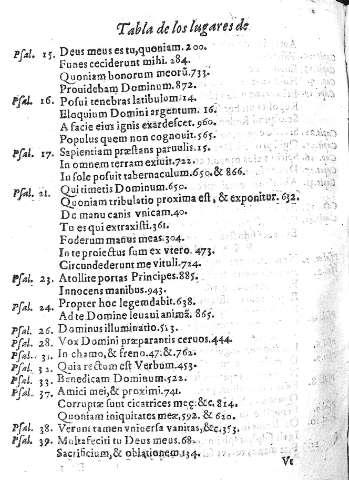 Tabla de los lugares de
Psal. 15. Deus meus es tu, quoniam. 200.
Funes ceciderunt mihi. 284.
Quoniam bonorum meorũ. 733.
Prouidebam Dominum. 872.
Psal. 16. Posui tenebras latibulum. 14.
Eloquium Domini argentum. 16.
A facie eius ignis exardescet. 960.
Populus quem non cognouit. 565.
Psal. 17. Sapientiam præstans paruulis. 15.
In omnem terram exiuit. 722.
In sole posuit tabernaculum. 650. & 866.
Psal. 21. Qui timetis Dominum. 650.
Quoniam tribulatio proxima est, & exponitur. 632.
De manu canis vnicam. 40.
Tu es qui extraxisti. 361.
Foderum manus meas. 304.
In te proiectus sum ex vtero. 473.
Circundederunt me vituli. 724.
Psal. 23. Atollite portas Principes. 885.
Innocens manibus. 943.
Psal. 24. Propter hoc legem dabit. 638.
Ad te Domine leuaui animã. 865.
Psal. 26. Dominus illuminatio. 513.
Psal. 28. Vox Domini præparantis ceruos. 444.
Psal. 31. In chamo, & freno. 47. & 762.
Psal. 32. Quia rectum est Verbum. 453.
Psal. 33. Benedicam Dominum. 522.
Psal. 37. Amici mei, & proximi. 741.
Corruptæ sunt cicatrices meæ. &c. 814.
Quoniam iniquitates meæ, 592. & 620.
Psal. 38. Verum tamen vniuersa vanitas, &c. 353.
Psal. 39. Multa feciti tu Deus meus. 68.
Sacrificium, & oblationem 134.